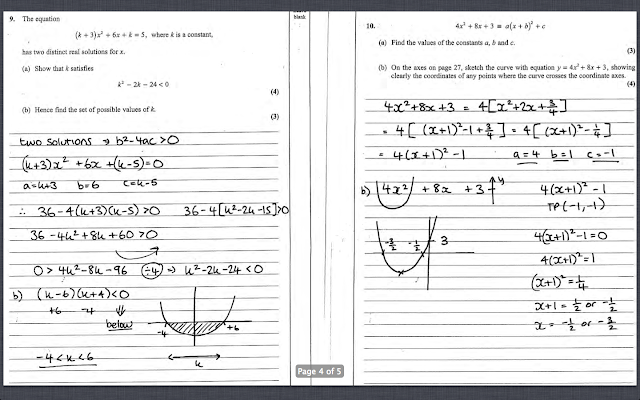 9. The equation
(k + 3)x² + 6x + k = 5, where k is a constant,
has two distinct real solutions for x.
(a) Show that k satisfies
k² − 2k − 24 < 0
(4)
(b) Hence find the set of possible values of k.
(3)
two solutions ⇒ b²-4ac > 0
(k+3)x² + 6x + (k-5) = 0
a=k+3 b=6 c=k-5
∴ 36-4(k+3)(k-5) > 0 36-4[k²-2k-15] > 0
36 - 4k² + 8k + 60 > 0
0 > 4k² - 8k - 96 (÷4) ⇒ k² - 2k - 24 < 0
b) (k-6)(k+4) < 0
+6 -4 ⇓
below
-4 +6
-4 < k < 6
k
blank
Page 4 of 5
10. 4x² + 8x + 3 ≡ a(x + b)² + c
(a) Find the values of the constants a, b and c.
(3)
(b) On the axes on page 27, sketch the curve with equation y = 4x² + 8x + 3, showing
clearly the coordinates of any points where the curve crosses the coordinate axes.
(4)
4x² + 8x + 3 = 4[x² + 2x + 3/4]
= 4[(x+1)² - 1 + 3/4] = 4[(x+1)² - 1/4]
= 4(x+1)² - 1 a=4 b=1 c=-1
b) 4x² + 8x + 3 y 4(x+1)² - 1
TP (-1,-1)
-3/2 -1/2 3
4(x+1)² - 1 = 0
4(x+1)² = 1
(x+1)² = 1/4
x+1 = 1/2 or -1/2
x = -1/2 or -3/2